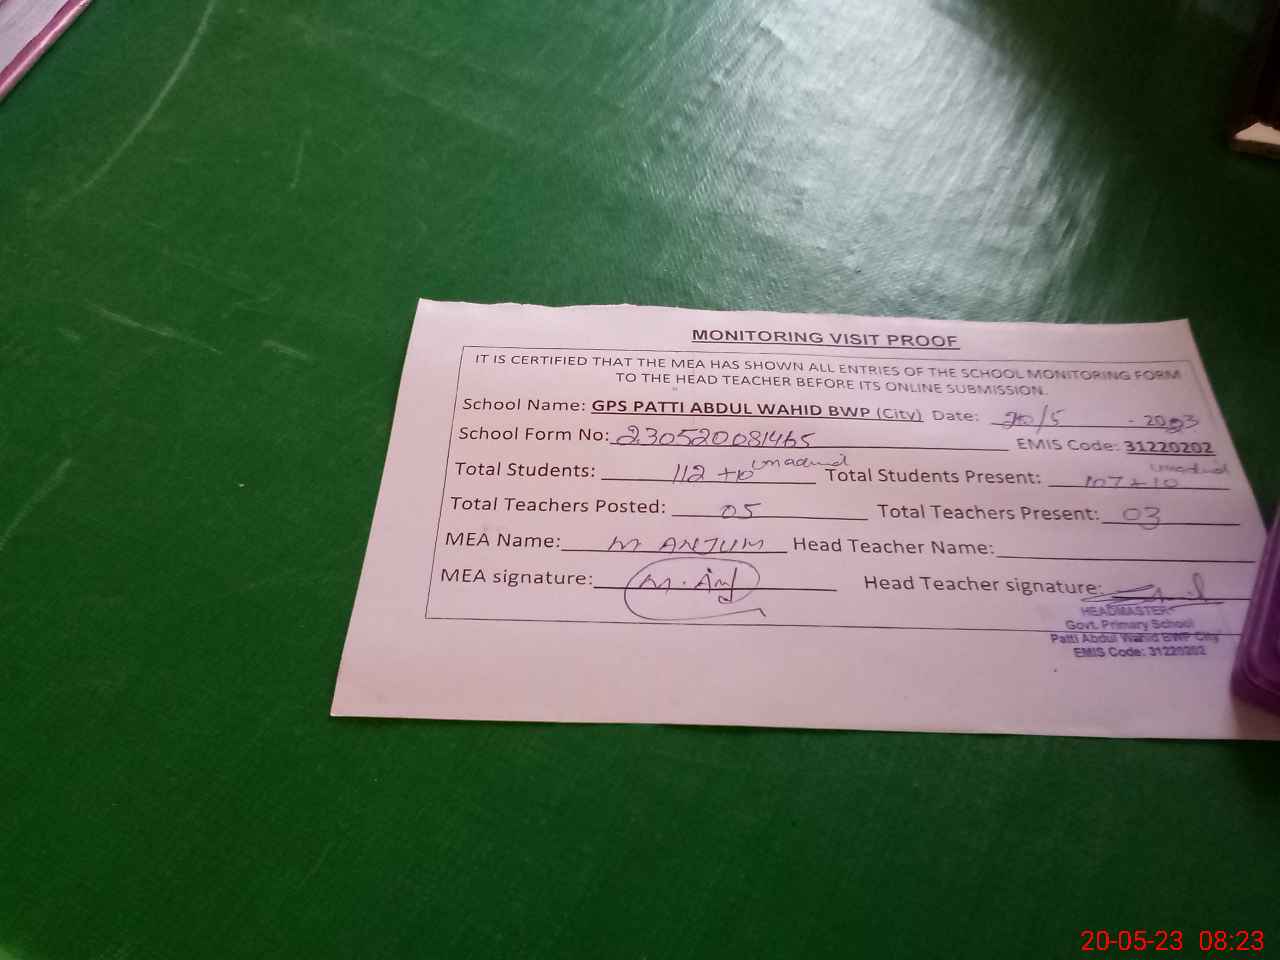 MONITORING VISIT PROOF
IT IS CERTIFIED THAT THE MEA HAS SHOWN ALL ENTRIES OF THE SCHOOL MONITORING FORM
TO THE HEAD TEACHER BEFORE ITS ONLINE SUBMISSION.
School Name: GPS PATTI ABDUL WAHID BWP (City) Date: 20/5 - 2023
School Form No: 230520081465 EMIS Code: 31220202
Total Students: 112 +10 Total Students Present: 107 + 10
Total Teachers Posted: 05 Total Teachers Present: 03
MEA Name: M ANJUM Head Teacher Name:
MEA signature: Head Teacher signature:
HEADMASTER
Govt. Primary School
Patti Abdul Wahid BWP City
EMIS Code: 31220202
20-05-23 08:23